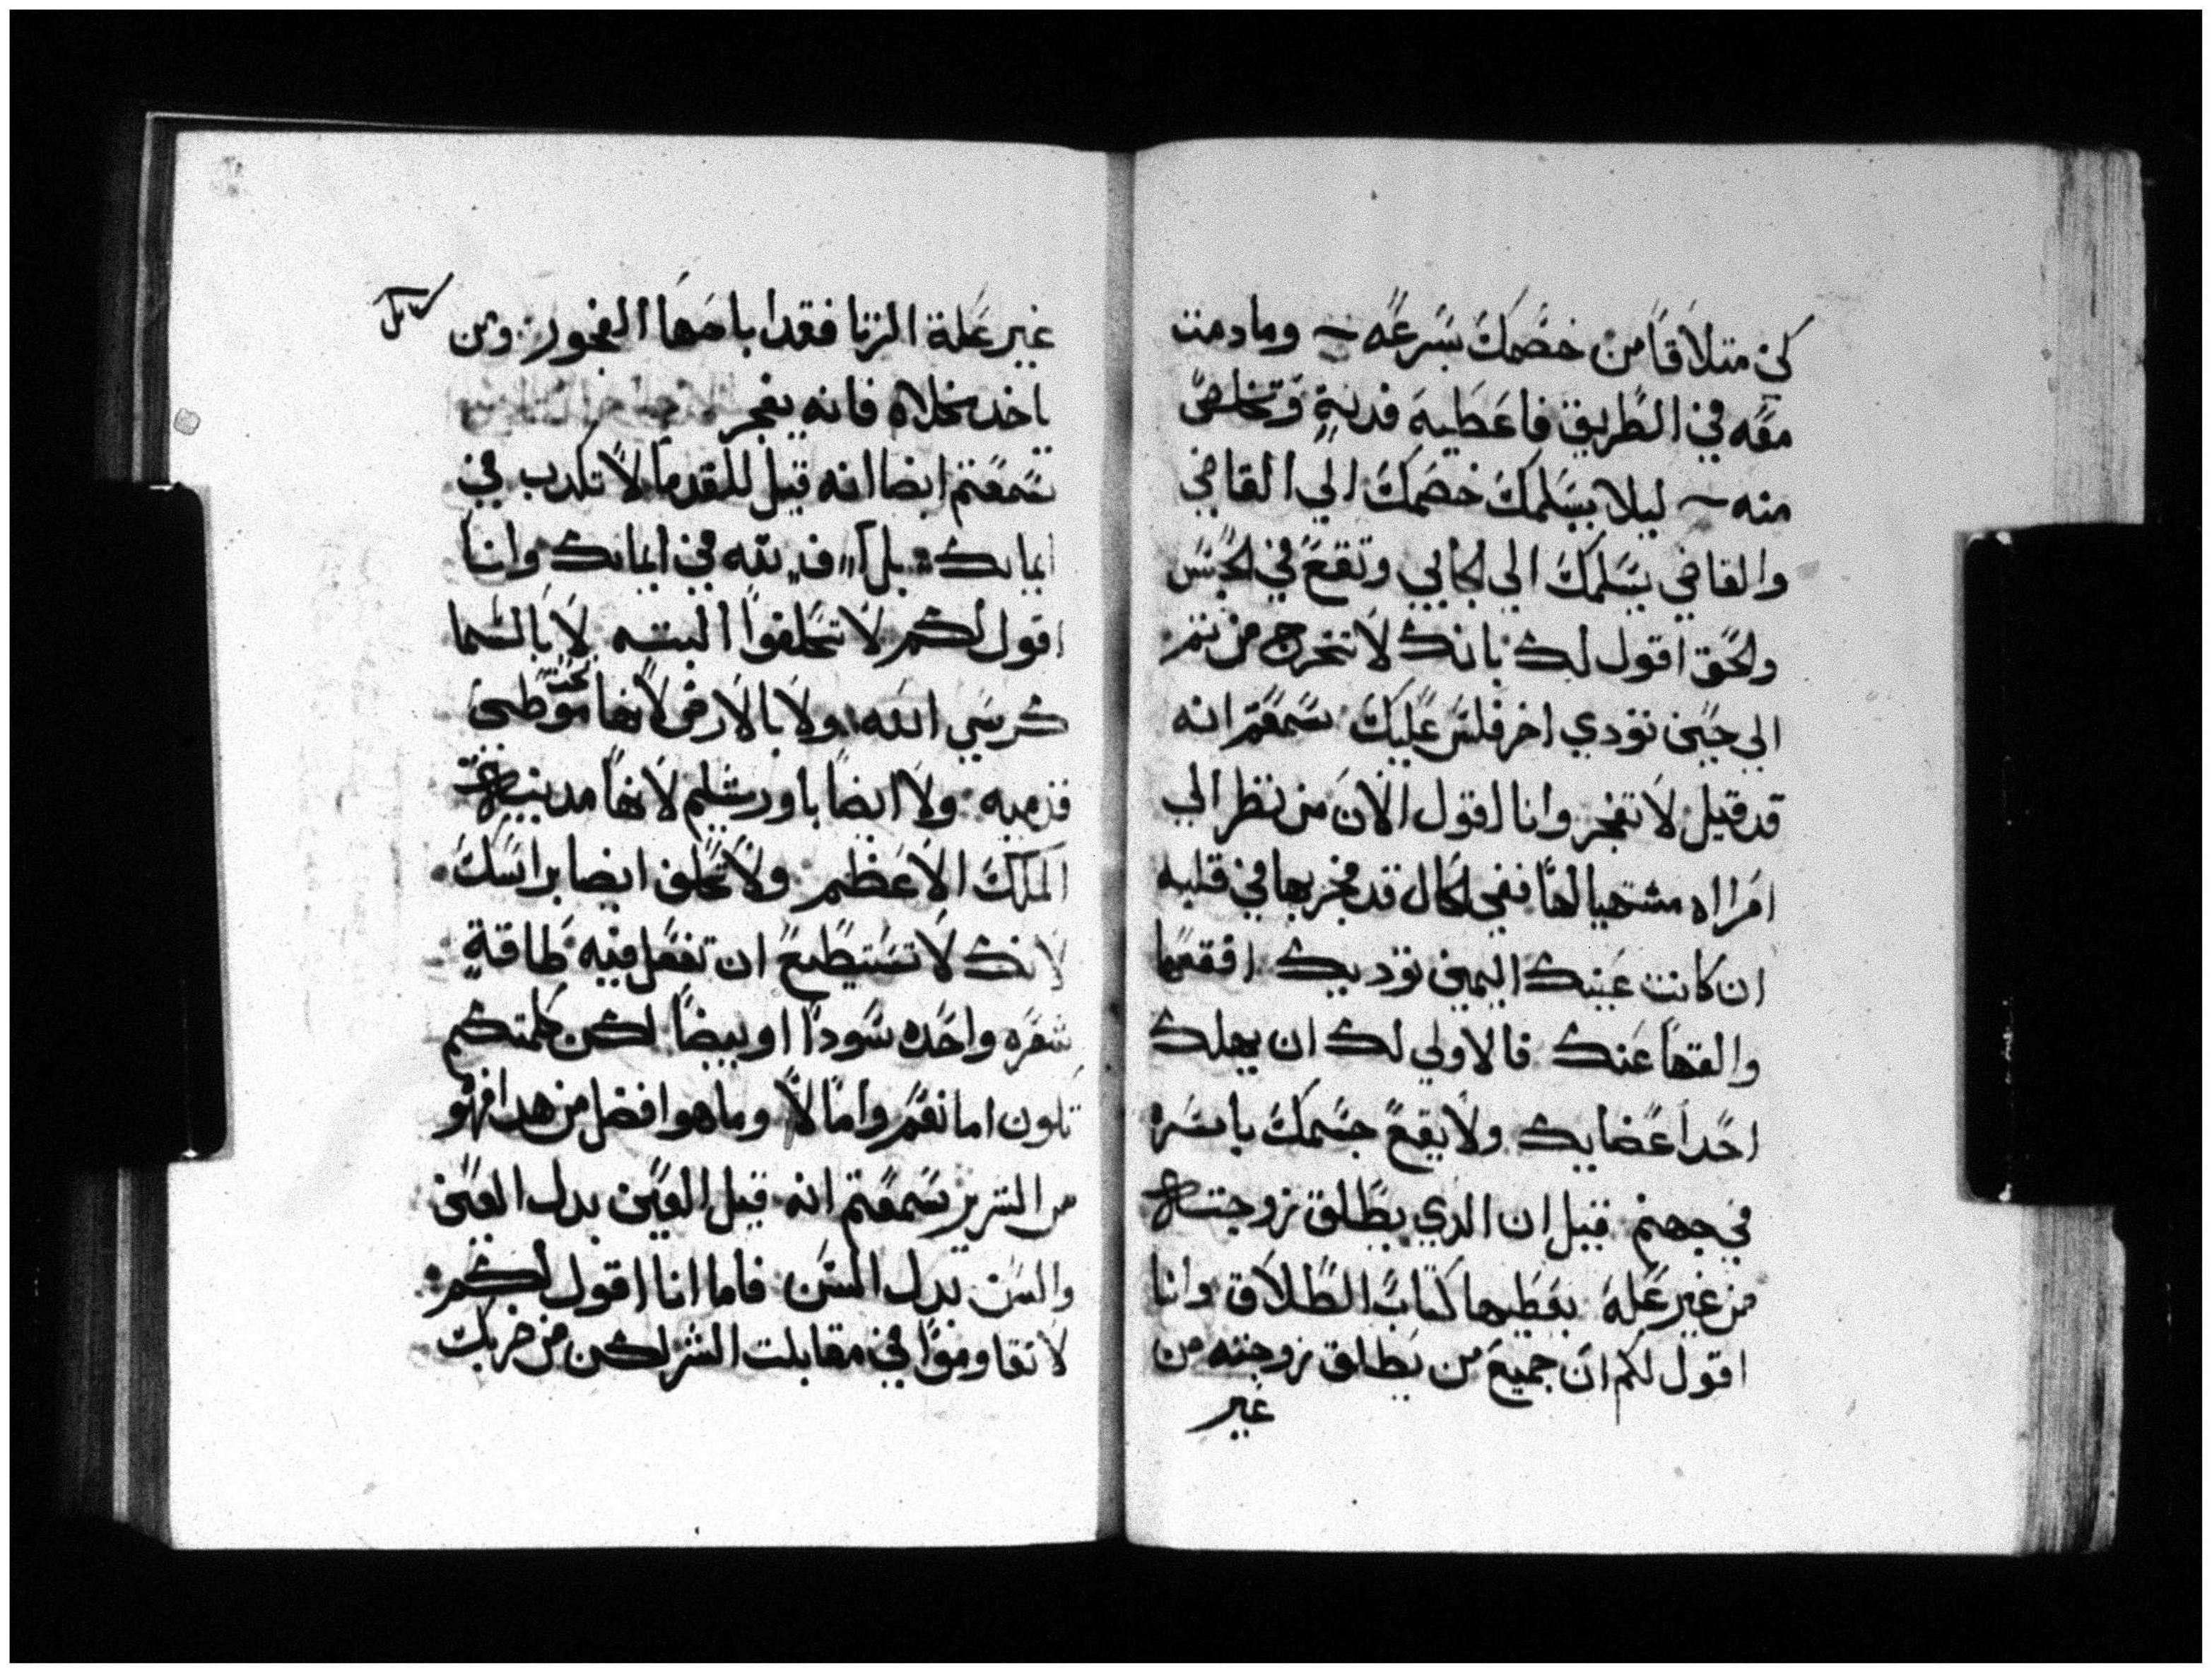 كن متلاقا من خصمك بسرعه ومادمت
معه في الطريق فاعطيه فدية وتخلص
منه ليلا يسلمك خصمك الي القاضي
والقاضي يسلمك الي الجابي وتقع في الحبس
والحق اقول لك بانك لا تخرج من تم
الي حين تودي اخر فلس عليك سمعتم انه
قد قيل لا تفجر وانا اقول الان من نظر الي
امراه مشتهيا لها ففي الحال قد فجر بها في قلبه
ان كانت عينك اليمين توديك افقعها
والقها عنك فالاولي لك ان يهلك
احد اعضايك ولا يقع جسمك باسره
في جهنم قيل ان الدي يطلق زوجته
من غير علة يعطيها كتاب الطلاق وانا
اقول لكم ان جميع من يطلق زوجته من
غير
غير علة الزنا فقد اباحها الفجور ومن
ياخد مخلاه فانه يفجر
سمعتم ايضا انه قيل للقدما لا تكدب في
ايمانك بل في ايمانك وانا
اقول لكم لا تحلفوا البته لا بالسما
كرسي الله ولا بالارض لانها تحت موطى
قدميه ولا ايضا باورشليم لانها مدينة
الملك الاعظم ولا تحلف ايضا براسك
لانك لا تستطيع ان تفعل فيه طاقة
شعره واحده سودا او بيضا لكن كلمتكم
تكون اما نعم واما لا وما هو افضل من هدا فهو
من الشرير سمعتم انه قيل العين بدل العين
والسن بدل السن فاما انا اقول لكم
لا تقاوموا في مقابلت الشر لكن من ضربك